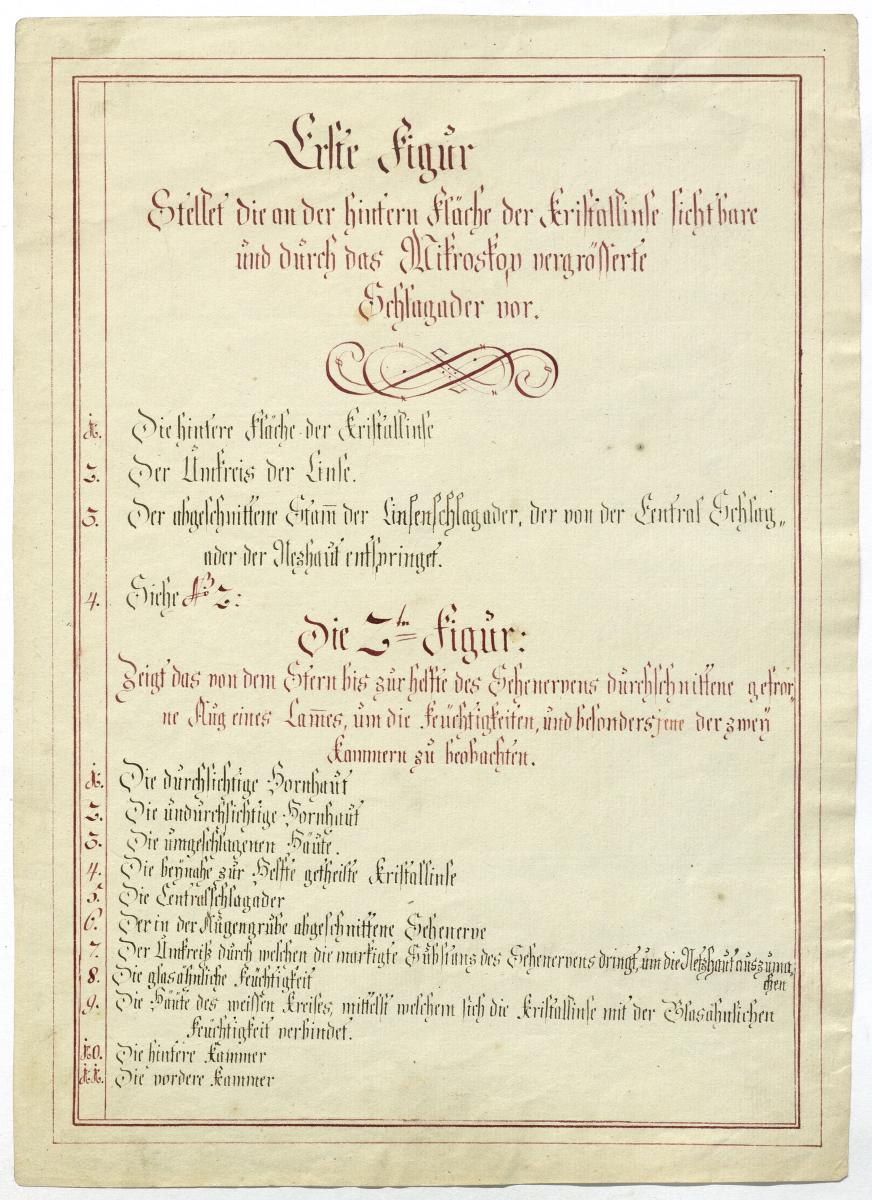 Erste Figur
Stellet die an der hintern Fläche der Kristallinse sichtbare
und durch das Mikroskop vergrösserte
Schlagader vor.
1. Die hintere Fläche der Kristallinse
2. Der Umkreis der Linse.
3. Der abgeschnittene Stam̅ der Linsenschlagader, der von der Central Schlag„
ader der Nezhaut entspringet.
4. Siehe № 2:
Die 2te Figur:
Zeigt das von dem Stern bis zur helfte des Sehenervens durchschnittene gefror„
ne Aug eines Lam̅es, um die Feuchtigkeiten, und besonders jene der zwey
Kammern zu beobachten.
1. Die durchsichtige Hornhaut
2. Die undurchsichtige Hornhaut
3. Die umgeschlagenen Häute.
4. Die beynahe zur Helfte getheilte Kristallinse
5. Die Centralschlagader
6. Der in der Augengrube abgeschnittene Sehenerve
7. Der Umkreiß durch welchen die markigte Substanz des Sehenervens dringt, um die Netzhaut auszuma„
chen
8. Die glasähnliche Feuchtigkeit
9. Die Häute des weissen Kreises, mittelst welchem sich die Kristallinse mit der Glasähnlichen
Feuchtigkeit verbindet.
10. Die hintere Kammer
11. Die vordere Kammer